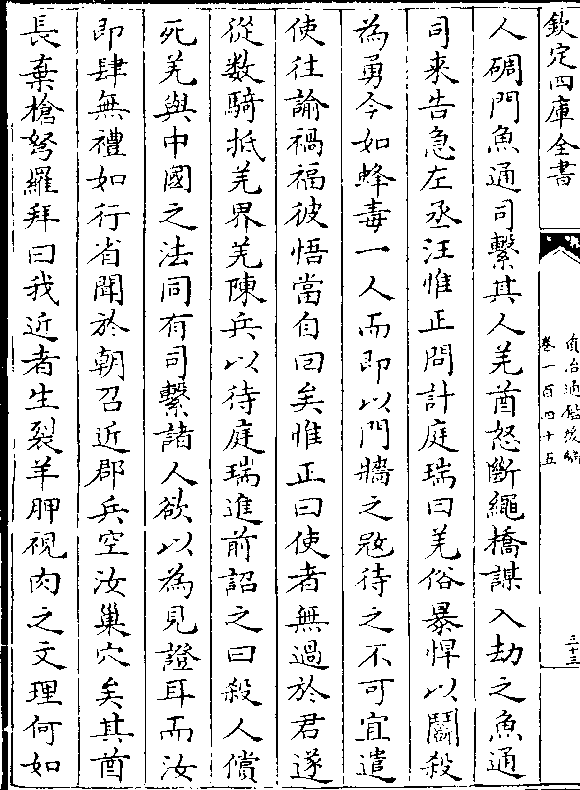 欽定四庫全書
資治通鑑後編
卷一百四十五
三十三
人碉門魚通司繫其人羌酋怒斷繩橋謀入劫之魚通
司來告急左丞汪惟正問計庭瑞曰羌俗暴悍以鬭殺
為勇今如蜂毒一人而即以門牆之敵待之不可宜遣
使往諭禍福彼悟當自回矣惟正曰使者無過於君遂
從数騎抵羌界羌陳兵以待庭瑞進前詔之曰殺人償
死羌與中國之法同有司繫諸人欲以為見證耳而汝
即肆無禮如行省聞於朝召近郡兵空汝巢穴矣其酋
長棄槍弩羅拜曰我近者生裂羊胛視肉之文理何如